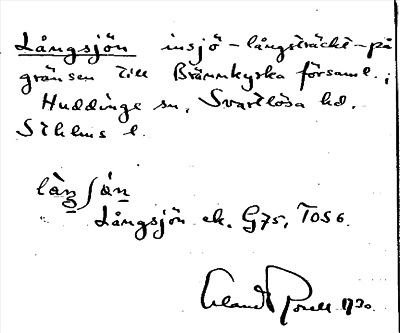 Långsjön insjö - långsträckt - på
gränsen till Brännkyrka församl.;
Huddinge sn, Svartlösa hd.
Sthlms l.
Långsjön ek. G75, TOS6.
1930.